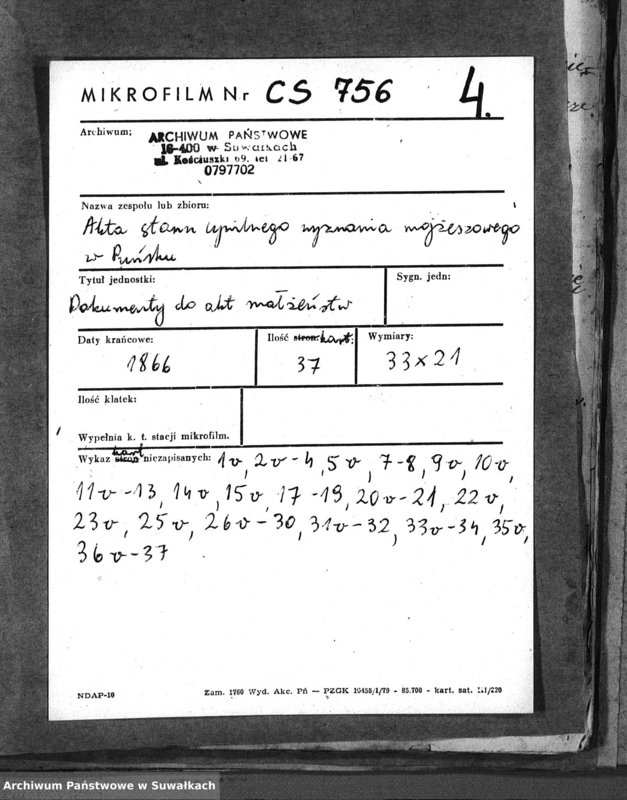 MIKROFILM Nr CS 756 4.
Archiwum;
ARCHIWUM PAŃSTWOWE
16-400 w Suwałkach
ul. Kościuszki 69, tel 21-67
0797702
Nazwa zespołu lub zbioru:
Akta stanu cywilnego wyznania mojżeszowego
w Puńsku
Tytuł jednostki: Sygn. jedn:
Dokumenty do akt małżeństw
Daty krańcowe: Ilość stron: kart: Wymiary:
1866 37 33x21
Ilość klatek:
Wypełnia k. t. stacji mikrofilm.
kart
Wykaz stron niezapisanych: 1v, 2v-4, 5v, 7-8, 9v, 10v,
11v-13, 14v, 15v, 17-19, 20v-21, 22v,
23v, 25v, 26v-30, 31v-32, 33v-34, 35v,
36v-37
NDAP-10 Zam. 1760 Wyd. Akc. Pń — PZGK 10455/I/79 - 85.700 - kart. sat. III/220
Archiwum Państwowe w Suwałkach